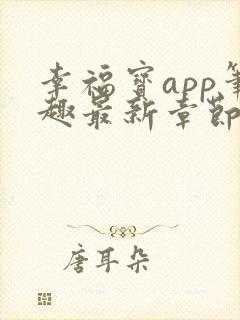 幸福宝app笔
趣最新章节
唐耳朵